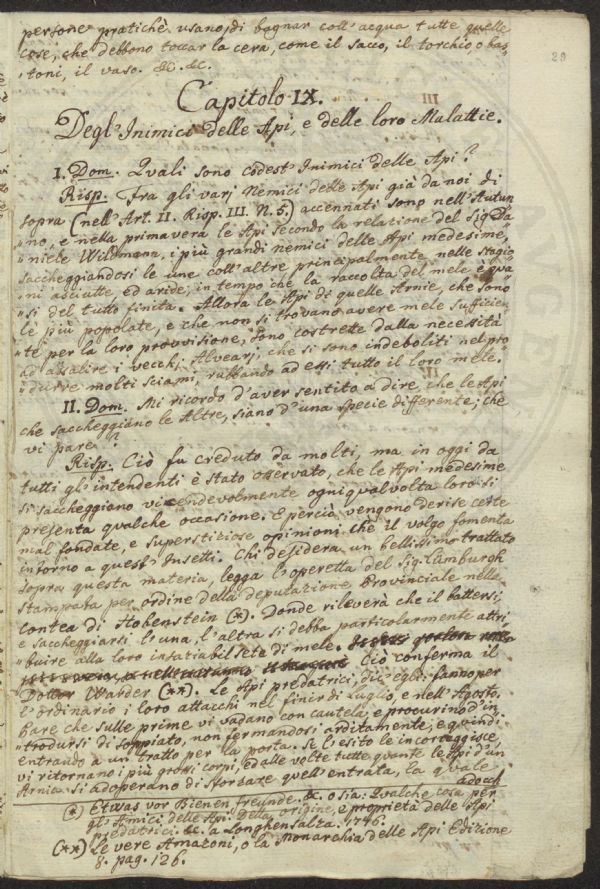 29
persone pratiche usano, di bagnar coll' acqua tutte quelle
cose, che debbono toccar la cera, come il sacco, il torchio, o bas-
toni, il vaso. &c. &c.
Capitolo IX.
Degl' Inimici delle Api, e delle loro Malattie.
I. Dom. Quali sono codest' Inimici delle Api?
Risp. Fra gli varj Nemici delle Api già da noi di
sopra (nell' Art. II. Risp. III. N. 5.) accennati sono nell' Autun
"no, e nella primavera le Api secondo la relazione del Sig. Da
"niele Wildmann, i più grandi nemici delle Api medesime,
saccheggiandosi le une coll' altre principalmente nelle stagio
"ni asciutte, ed aride, in tempo che la raccolta del mele è qua
"si del tutto finita. Allora le Api di quelle Arnie, che sono
"le più popolate, e che non si trovano avere mele sufficien
"te per la loro provvisione, sono costrette dalla necessità
"ad assalire i vecchj Alvearj, che si sono indeboliti nel pro
"durre molti sciami, rubbando ad essi tutto il loro mele.
II. Dom. Mi ricordo d'aver sentito a dire, che le Api
che saccheggiano le Altre, siano d'una specie differente; che
vi pare?
Risp. Ciò fu creduto da molti, ma in oggi da
tutti gl' intendenti è stato osservato, che le Api medesime
si saccheggiano vicendevolmente ogniqualvolta loro si
presenta qualche occasione. E perciò vengono derise certe
mal fondate, e superstiziose opinioni che il volgo fomenta
intorno a quest' Insetti. Chi desidera un bellissimo trattato
sopra questa materia, legga l'operetta del Sig.
stampata per ordine della deputazione Provinciale nella
contea di Hohenstein (*). Donde rileverà che il battersi,
e saccheggiarsi l'una, l'altra si debba particolarmente attri
"buire alla loro insaziabil sete di mele.
Ciò conferma il
Dottor Warder (**). Le Api predatrici, dic' egli, fanno per
l'ordinario i loro attacchi nel finir di Luglio, e nell' Agosto,
Pare che sulle prime vi vadano con cautela, e procurino d'in
"trodursi di soppiato, non fermandosi arditamente, e quindi
entrando a un tratto per la porta. Se l'esito le incoraggisce,
vi ritornano i più grossi corpi, e dalle volte tutte quante le Api d'un
Arnia si adoperano di sforzare quell' entrata, la quale
adoch
(*) Etwas vor Bienen freunde. &c. o sia. Qualche cosa per
gl' Amici delle Api. Della origine, e proprietà delle Api
predatrici. &c. a Longhensalza. 1776.
(**) Le vere Amazoni, o la Monarchia delle Api Edizione
8. pag. 126.